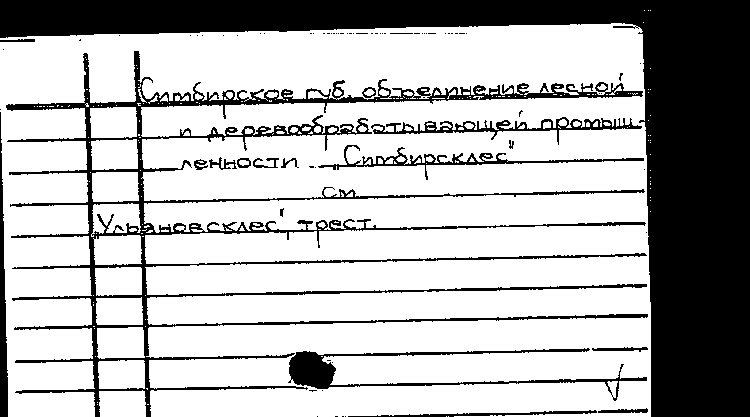 Симбирское губ. объединение лесной
и деревообрабатывающей промыш-
ленности „Симбирсклес"
см
„Ульяновсклес", трест.